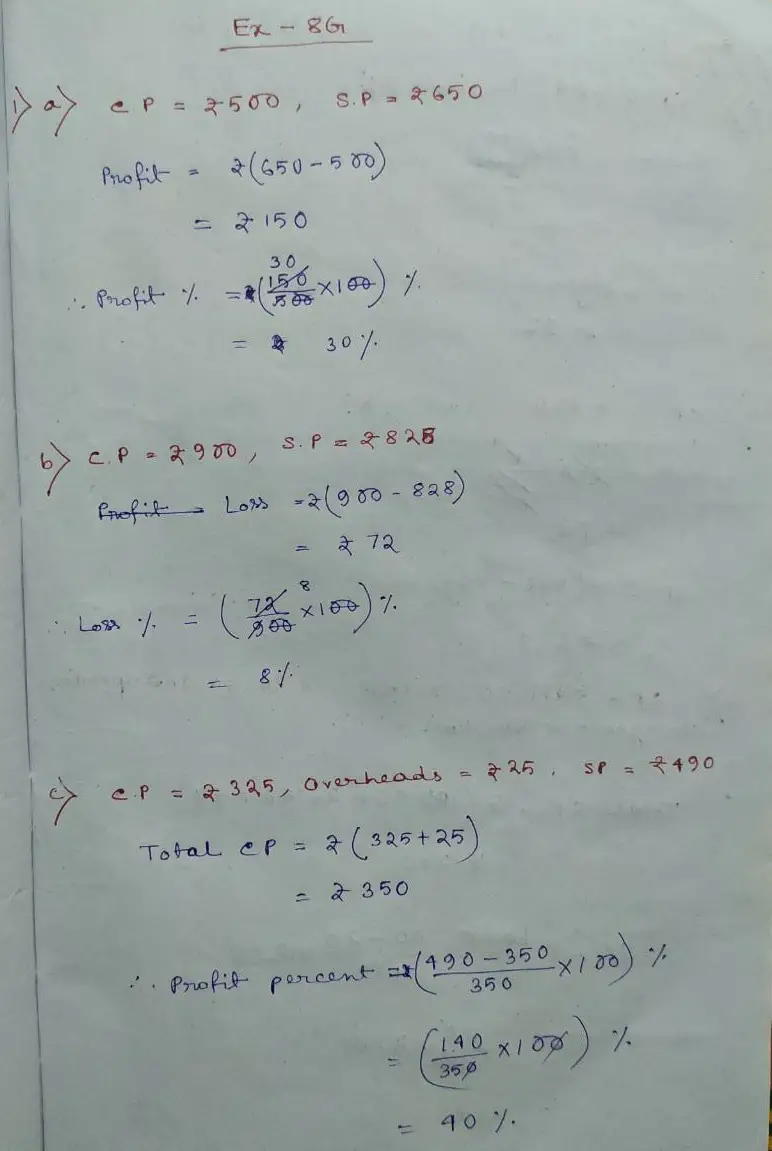 Ex - 8G
1) a) C P = ₹500, S.P = ₹650
Profit = ₹(650-500)
= ₹150
30
∴ Profit % = (150/500 ×100) %
= 30%
b) C.P = ₹900, S.P = ₹828
Profit = Loss = ₹(900-828)
= ₹72
8
∴ Loss % = (72/900 ×100) %
= 8%
c) C.P = ₹325, Overheads = ₹25, SP = ₹490
Total CP = ₹(325+25)
= ₹350
∴ Profit percent = (490-350/350 ×100) %
= (140/350 ×100) %
= 40 %